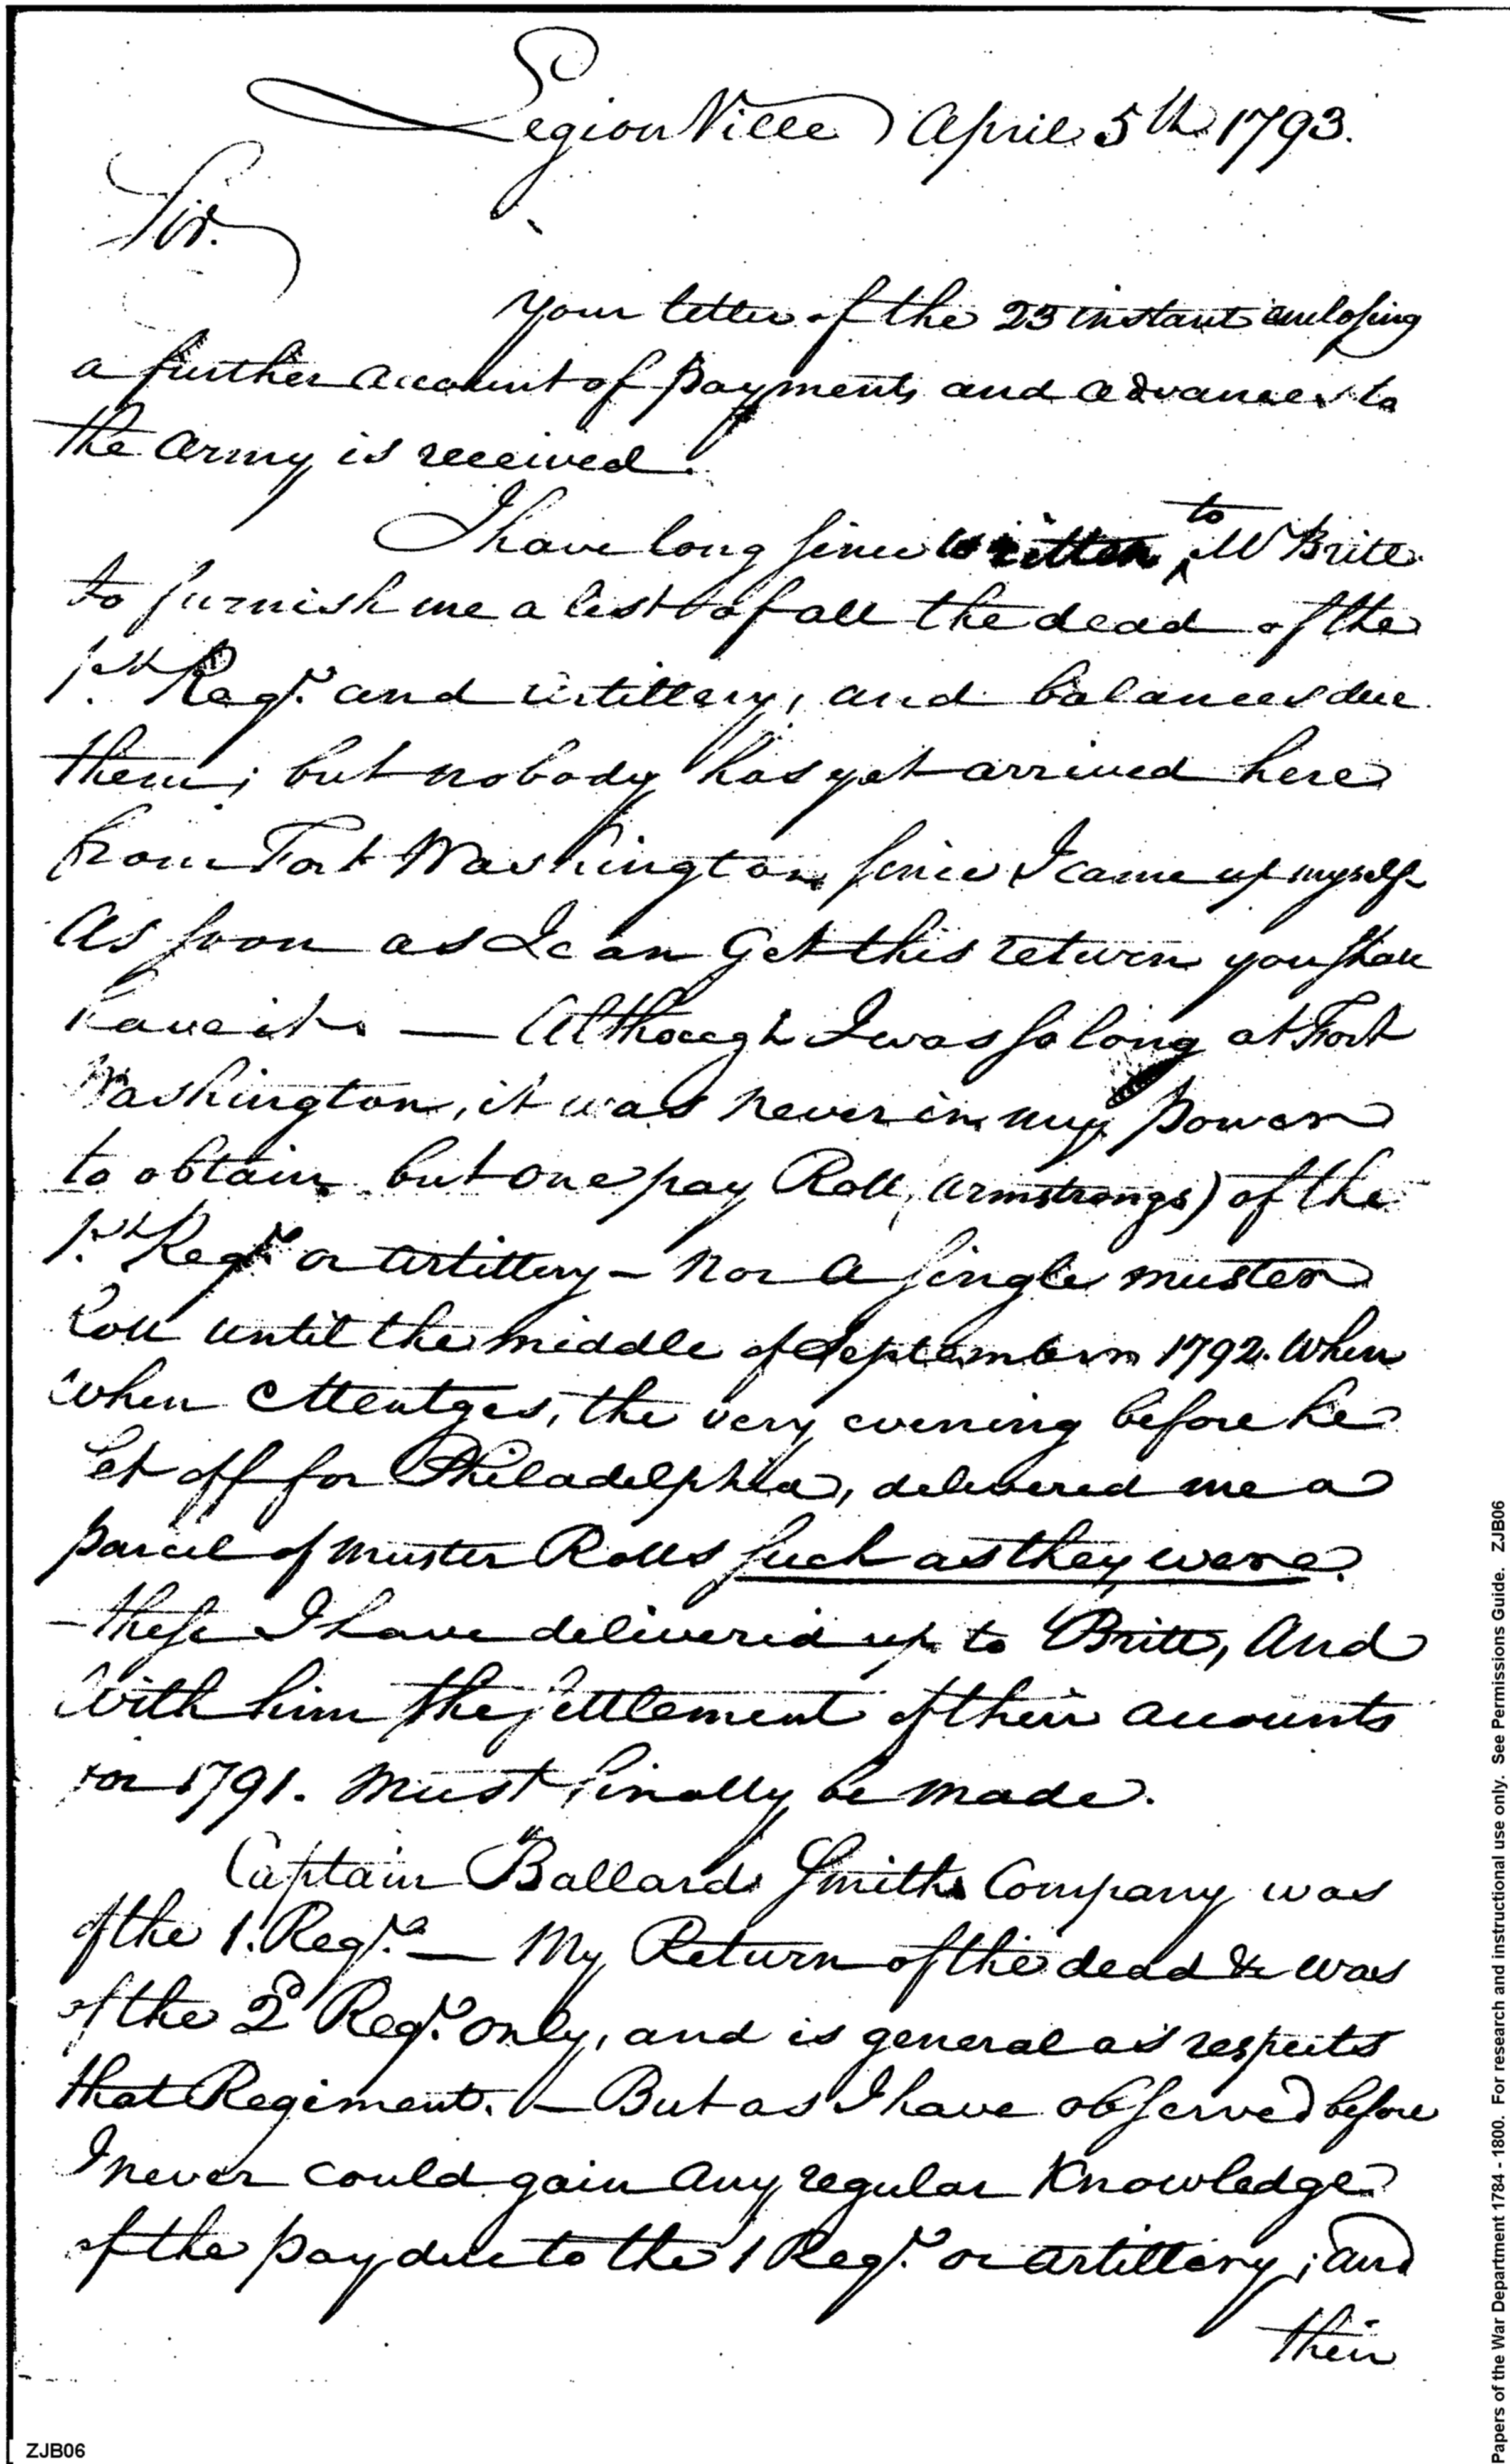 LegionVille April 5th 1793.
Sir.
Your letter of the 23 instant enclosing
a further account of payments and advances to
the Army is received.
to
I have long since written ^ Mr Britt
to furnish me a list of all the dead of the
1.st Regt. and artillery, and balances due
them; but nobody has yet arrived here
from Fort Washington since I came up myself
As soon as I can Get this return you shall
have it. — Although I was so long at Fort
Washington, it was never in my power
to obtain but one pay Roll, (Armstrongs) of the
1.st Regt. or artillery — nor a single muster
Roll until the middle of September 1792. When
when Mentges, the very evening before he
set off for Philadelphia, delivered me a
parcel of muster Rolls such as they were.
— these I have delivered up to Britt, and
with him the settlement of their accounts
for 1791. must finally be made.
Captain Ballard Smiths Company was
of the 1. Regt. — My Return of the dead &c was
of the 2d Regt. only, and is general as respects
that Regiment. — But as I have observed before
I never could gain any regular Knowledge
of the pay due to the 1 Regt. or artillery; and
their
Papers of the War Department 1784 - 1800. For research and instructional use only. See Permissions Guide. ZJB06
ZJB06